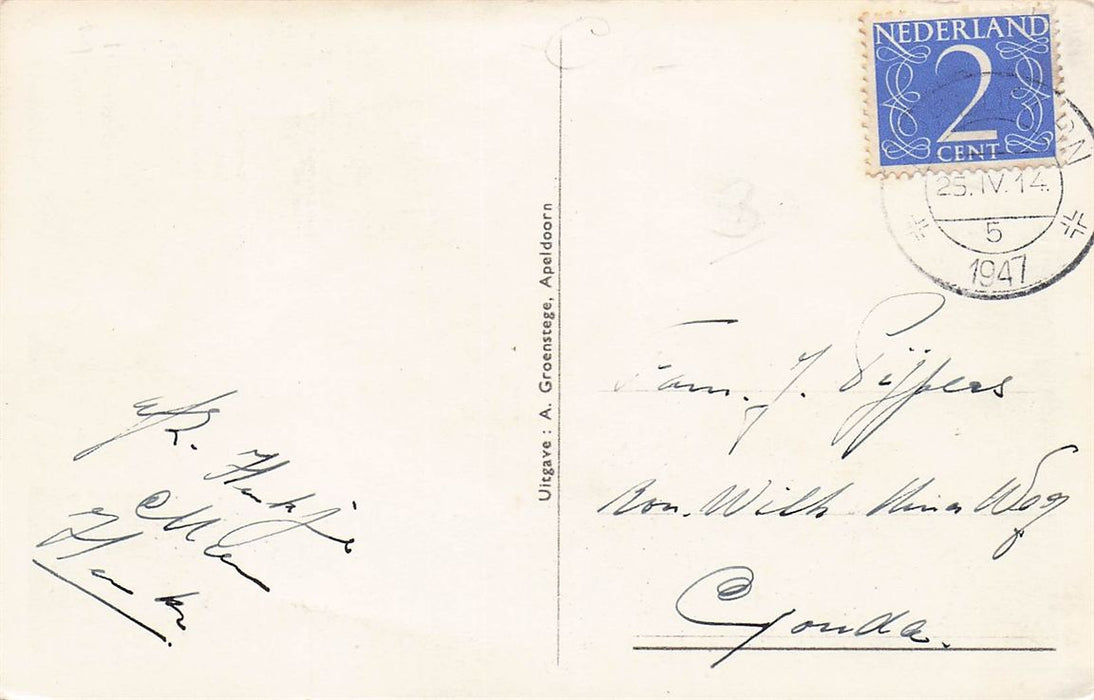 NEDERLAND
2
CENT
25.IV.14.
5
1947
Uitgave : A. Groenstege, Apeldoorn
Fam. J. Pijpers
Kon. Wilhelmina Weg
Gouda.
afz.
Henk